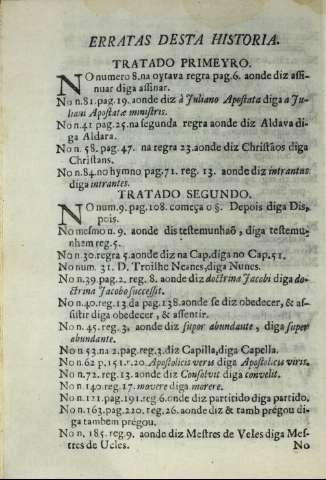 ERRATAS DESTA HISTORIA.
TRATADO PRIMEYRO.
NO numero 8. na oytava regra pag. 6. aonde diz assi-
nuar diga assinar.
No n. 81. pag. 19. aonde diz à Juliano Apostata diga a Ju-
liani Apostatæ ministris.
No n. 41 pag. 25. na segunda regra aonde diz Aldava di-
ga Aldara.
No n. 58. pag. 47. na regra 23. aonde diz Christãos diga
Christans.
No n. 84. no hymno pag. 71. reg. 13. aonde diz intrantus
diga intrantes.
TRATADO SEGUNDO.
NO num. 9. pag. 108. começa o §. Depois diga Dis,
pois.
No mesmo n. 9. aonde dis testemunhaõ, diga testemu-
nhem reg. 5.
No n. 30. regra 5. aonde diz na Cap. diga no Cap. 51.
No num. 31. D. Troilhe Neanes, diga Nunes.
No n. 39. pag. 2. reg. 8. aonde diz doctrina Jacobi diga do-
ctrina Jacobo successit.
No n. 40. reg. 13 da pag. 138. aonde se diz obedecer, & as-
sistir diga obedecer, & assentir.
No n. 45. reg. 3. aonde diz supor abundante, diga super
abundante.
No n 53. na 2. pag. reg. 3. diz Capilla, diga Capella.
No n. 62 p. 151. r. 20. Apostolicis veris diga Apostolicis viris.
No n. 72. reg. 13. aonde diz Consolvit diga convelit.
No n 140. reg. 17. movere diga morere.
No n. 121. pag. 191. reg 6. onde diz partitido diga partido.
No n. 163. pag. 220. reg. 26. aonde diz & tamb prégou di-
ga tambem prégou.
No n. 185. reg. 9. aonde diz Mestres de Veles diga Mes-
tres de Ucles.
No